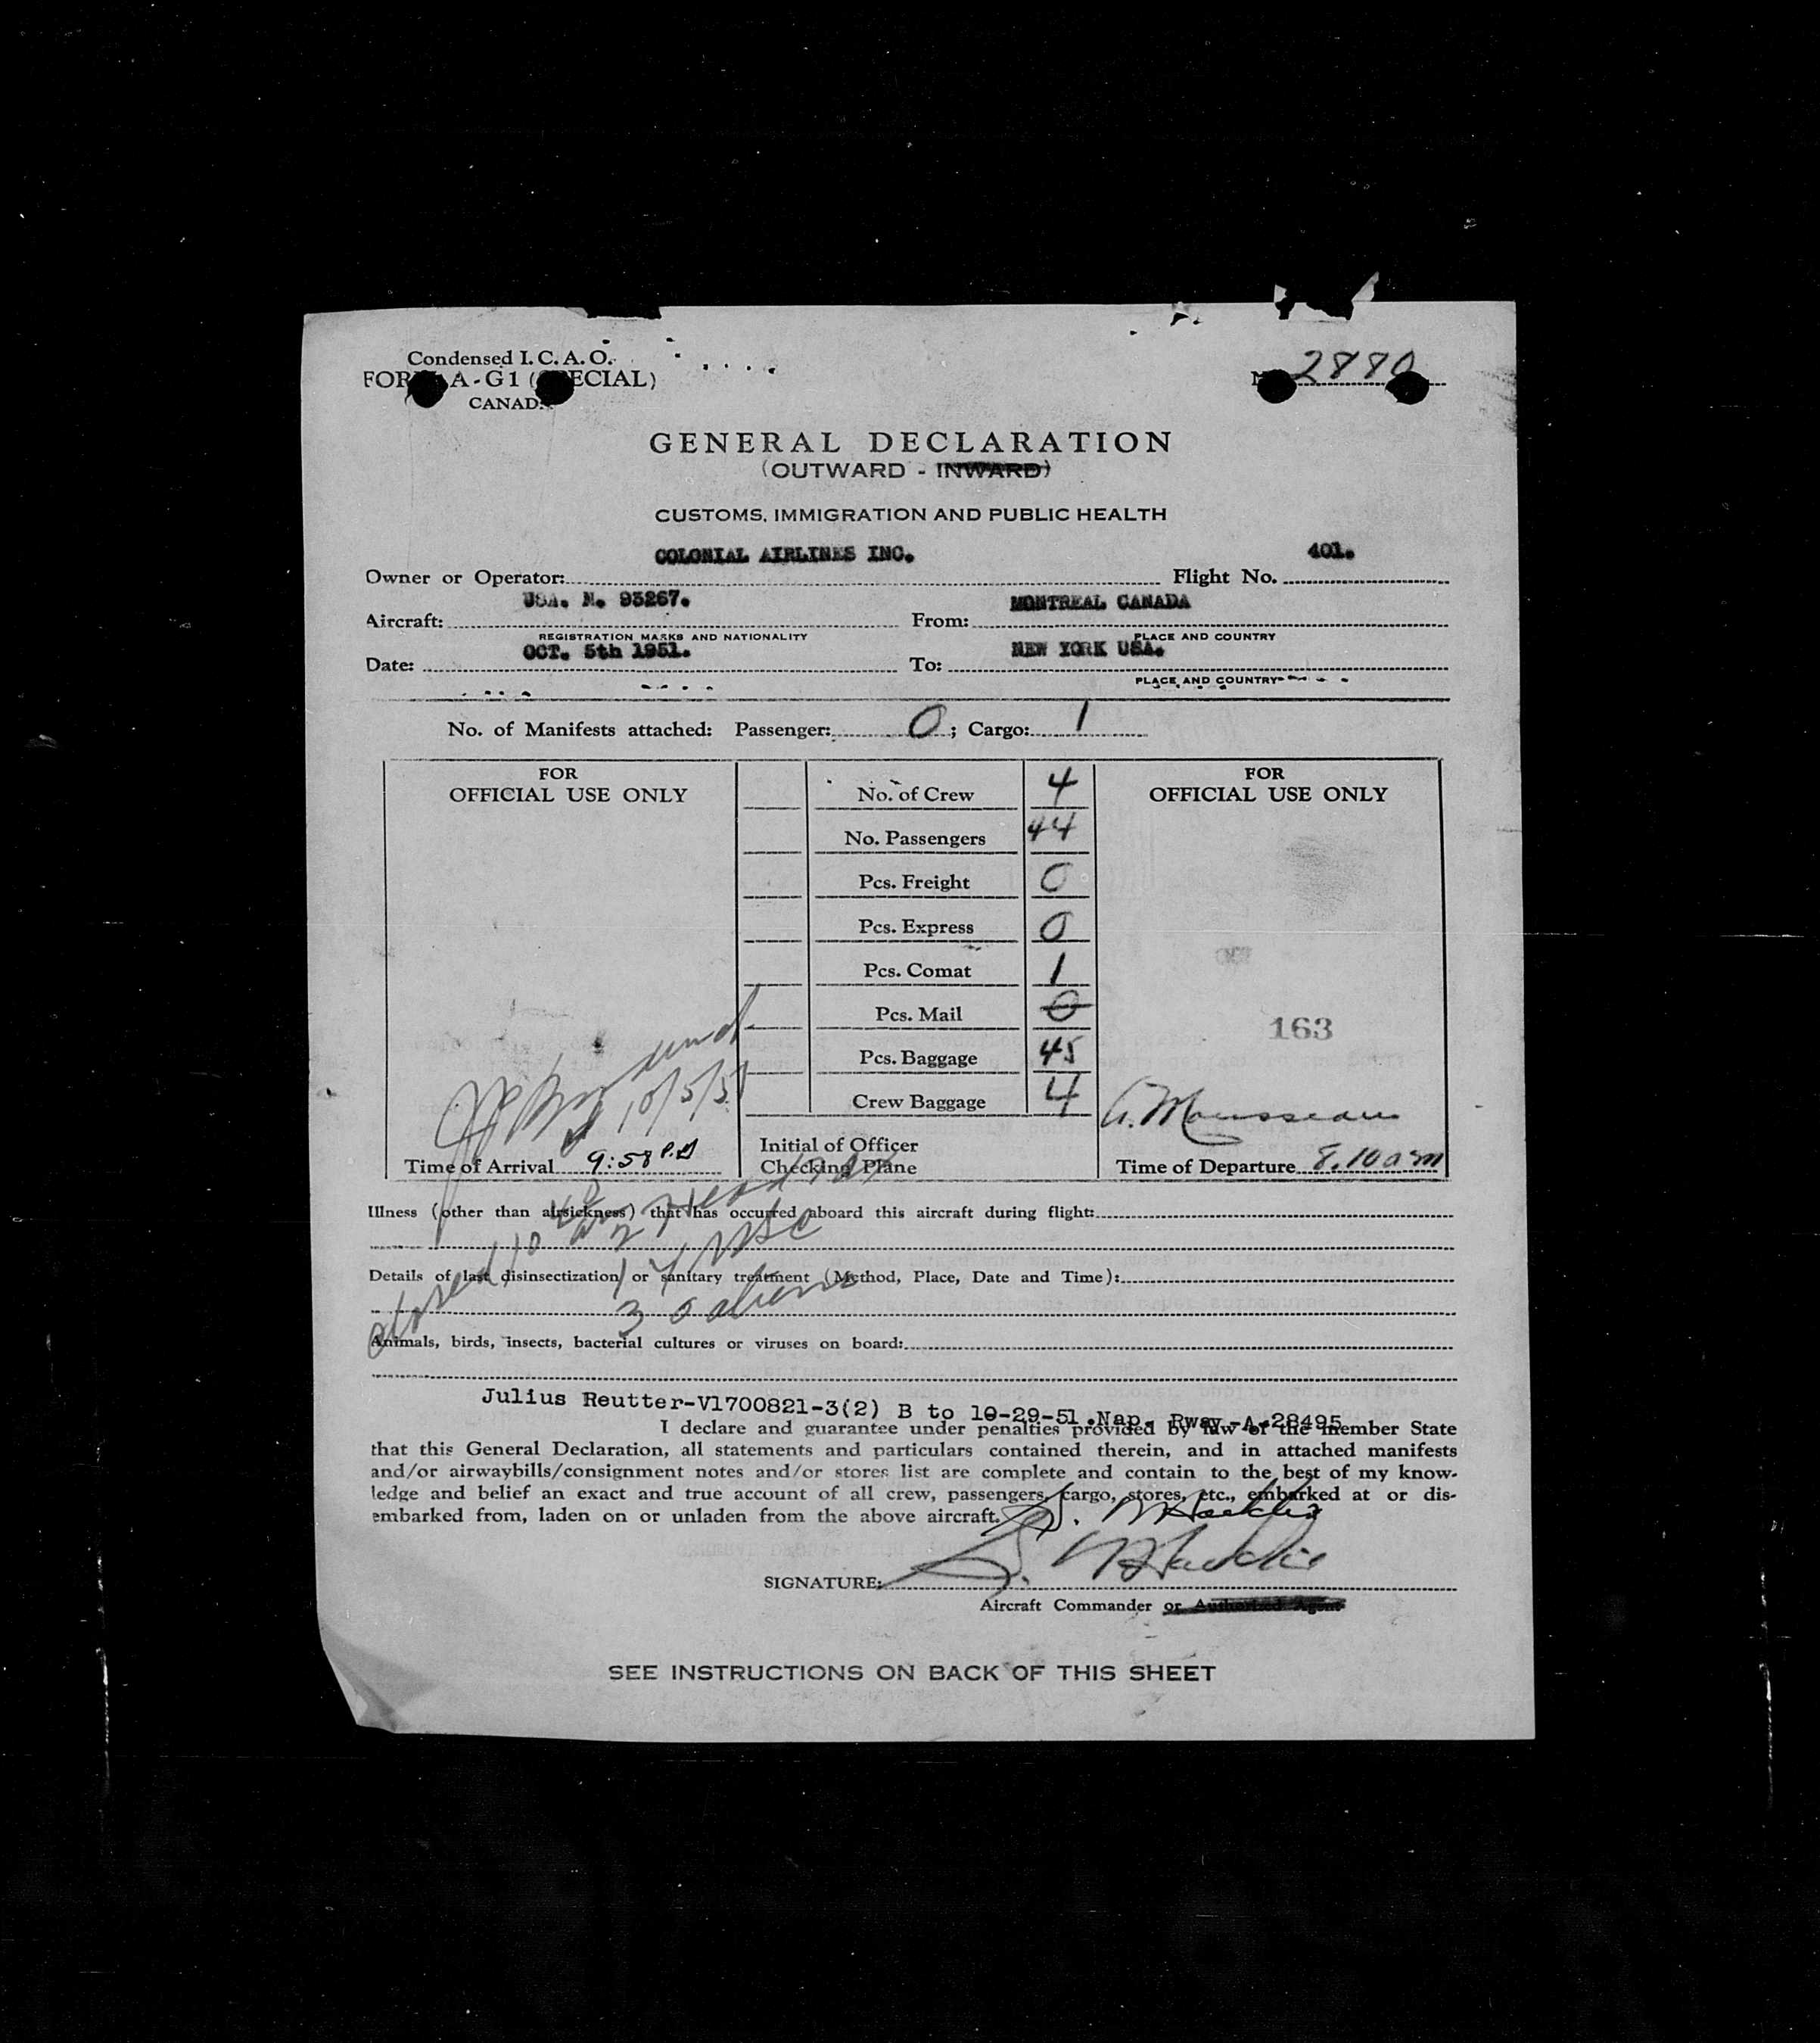 Condensed I. C. A. O.
A-G1 ( ECIAL)
CANAD
2880
GENERAL DECLARATION
(OUTWARD - INWARD)
CUSTOMS, IMMIGRATION AND PUBLIC HEALTH
COLONIAL AIRLINES INC. 401.
Owner or Operator: Flight No.
USA. N. 93267. MONTREAL CANADA
Aircraft: From:
REGISTRATION MARKS AND NATIONALITY PLACE AND COUNTRY
OCT. 5th 1951. NEW YORK USA.
Date: To:
PLACE AND COUNTRY
No. of Manifests attached: Passenger: 0 ; Cargo: 1
FOR
OFFICIAL USE ONLY
No. of Crew 4
No. Passengers 44
Pcs. Freight 0
Pcs. Express 0
Pcs. Comat 1
Pcs. Mail 0
Pcs. Baggage 45
Crew Baggage 4
FOR
OFFICIAL USE ONLY
163
10/5/51
A. Mousseau
Time of Arrival 9:58 P.M
Initial of Officer
Checking Plane
Time of Departure 8.10 am
Illness (other than airsickness) that has occurred aboard this aircraft during flight:
Details of last disinsectization or sanitary treatment (Method, Place, Date and Time):
3 0 aliens
Animals, birds, insects, bacterial cultures or viruses on board:
Julius Reutter-V1700821-3(2) B to 10-29-51.Nap. Pway.-A-28495
I declare and guarantee under penalties provided by law of the member State
that this General Declaration, all statements and particulars contained therein, and in attached manifests
and/or airwaybills/consignment notes and/or stores list are complete and contain to the best of my know-
ledge and belief an exact and true account of all crew, passengers, cargo, stores, etc., embarked at or dis-
embarked from, laden on or unladen from the above aircraft.
SIGNATURE:
Aircraft Commander or Authorized Agent
SEE INSTRUCTIONS ON BACK OF THIS SHEET